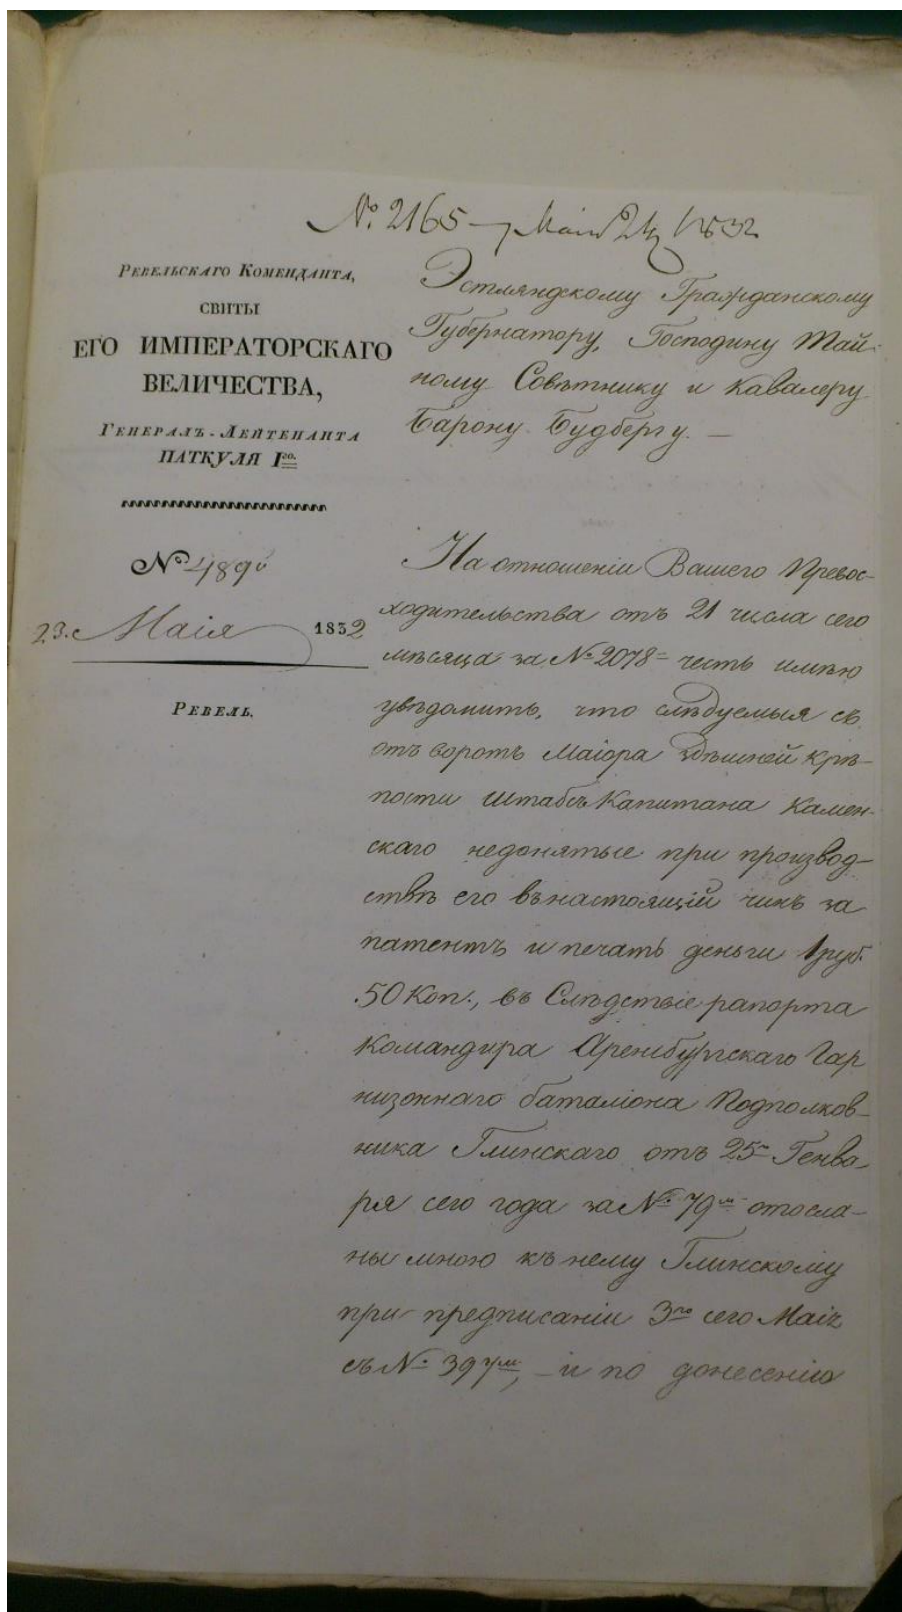 № 2165 — Маія 24 1832
Ревельскаго Коменданта,
свиты
ЕГО ИМПЕРАТОРСКАГО
ВЕЛИЧЕСТВА,
Генералъ-Лейтенанта
ПАТКУЛЯ Iго.
№
23. Маія 1832
Ревель.
Эстляндскому Гражданскому
Губернатору, Господину Тай-
ному Совѣтнику и Кавалеру
Барону Будбергу. —
На отношеніи Вашего Превос-
ходительства отъ 21 числа сего
мѣсяца за № 2078 честь имѣю
увѣдомить, что слѣдуемыя съ
отъ воротъ Маіора здѣшней крѣ-
пости Штабсъ Капитана Камен-
скаго недонятые при производ-
ствѣ его въ настоящій чинъ за
патентъ и печать деньги 1 руб.
50 Коп., въ Слѣдствіе рапорта
Командира Аренсбургскаго Гар
низоннаго баталіона Подполков-
ника Глинскаго отъ 25 Генва-
ря сего года за № 79м отосла-
ны мною къ нему Глинскому
при предписаніи 3го сего Маія
съ № 397м, — и по донесенію